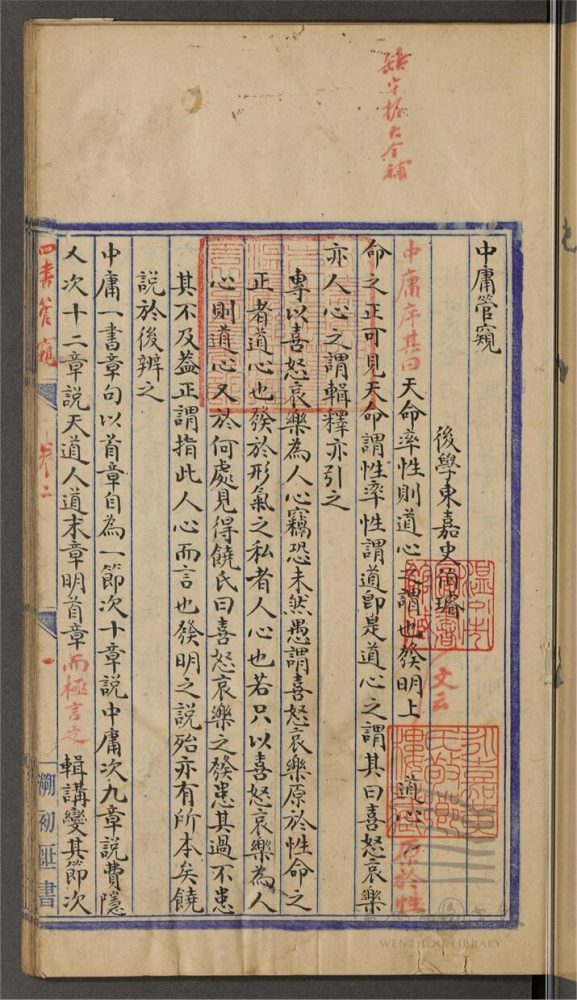 缺
大介補
中庸管窺
後學東嘉史伯璿
中庸序其曰天命率性則道心之謂也發明上文云道心原於性
命之正可見天命謂性率性謂道即是道心之謂其曰喜怒哀樂
亦人心之謂輯釋亦引之
專以喜怒哀樂為人心竊恐未然愚謂喜怒哀樂原於性命之
正者道心也發於形氣之私者人心也若只以喜怒哀樂為人
心則道心又於何處見得饒氏曰喜怒哀樂之發患其過不患
其不及蓋正謂指此人心而言也發明之說殆亦有所本矣饒
說於後辨之
中庸一書章句以首章自為一節次十章說中庸次九章說費隱
又次十二章說天道人道末章明首章而極言之輯講變其節次
四書管窺
卷二
一
溯初匪書
WENZHOU LIBRARY